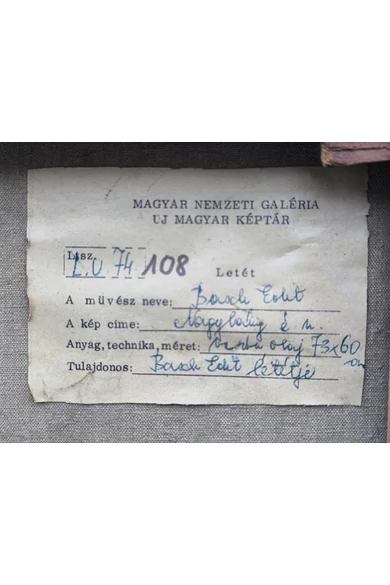 MAGYAR NEMZETI GALÉRIA
UJ MAGYAR KÉPTÁR
Ltsz. L.U 74 108
Letét
A müvész neve: Basch Edit
A kép címe:
Anyag, technika, méret: olaj 73x60 cm
Tulajdonos: Basch Edit letétje